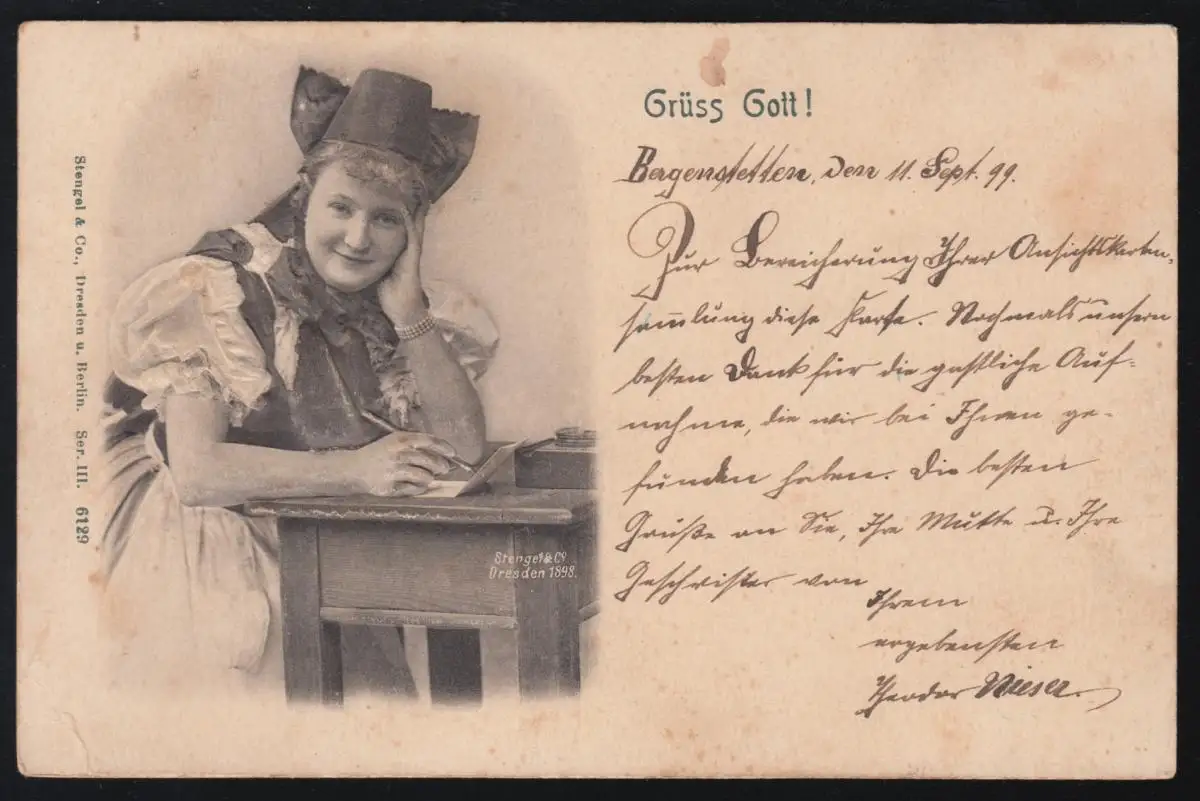 Grüss Gott!
Bergenstetten, den 11. Sept. 99.
Zur Bereicherung Ihrer Ansichtskarten-
sam̅lung diese Karte. Nochmals unsern
besten Dank für die gastliche Auf-
nahme, die wir bei Ihnen ge-
funden haben. Die besten
Grüße an Sie, Ihre Mutter u. Ihre
Geschwister von
Ihrem
ergebensten
Theodor Wieser
Stengel & Co., Dresden u. Berlin. Ser. III. 6129
Stengel & Co
Dresden 1898.